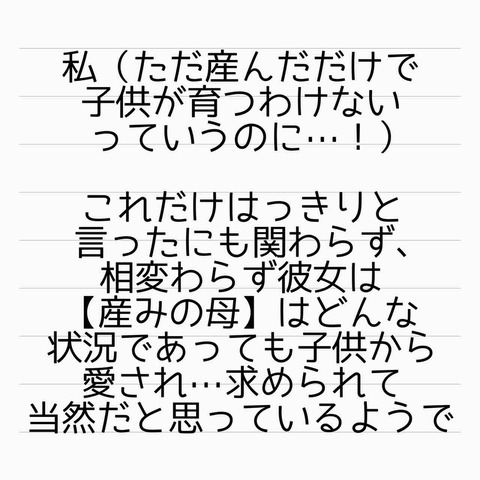 私（ただ産んだだけで
子供が育つわけない
っていうのに…！）
これだけはっきりと
言ったにも関わらず、
相変わらず彼女は
【産みの母】はどんな
状況であっても子供から
愛され…求められて
当然だと思っているようで